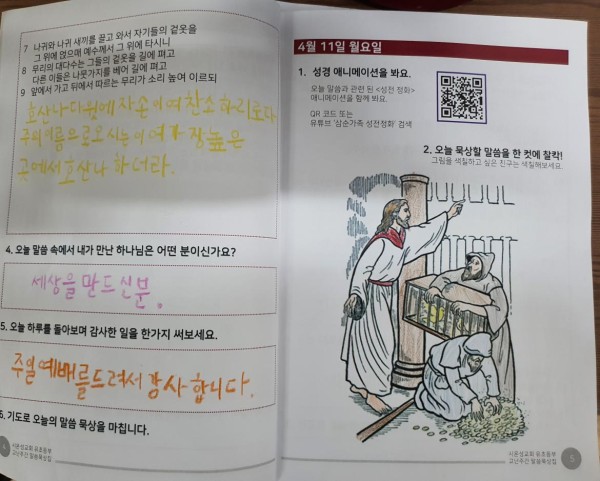 7 나귀와 나귀 새끼를 끌고 와서 자기들의 겉옷을
그 위에 얹으매 예수께서 그 위에 타시니
8 무리의 대다수는 그들의 겉옷을 길에 펴고
다른 이들은 나뭇가지를 베어 길에 펴고
9 앞에서 가고 뒤에서 따르는 무리가 소리 높여 이르되
호산나 다윗에 자손이여 찬소 하리로다
주의 이름으로 오시는 이여 가장 높은
곳에서 호산나 하더라.
4. 오늘 말씀 속에서 내가 만난 하나님은 어떤 분이신가요?
세상을 만드신 분.
5. 오늘 하루를 돌아보며 감사한 일을 한가지 써보세요.
주일예배를드려서감사합니다.
6. 기도로 오늘의 말씀 묵상을 마칩니다.
4
시온성교회 유초등부
고난주간 말씀묵상집
4월 11일 월요일
1. 성경 애니메이션을 봐요.
오늘 말씀과 관련 된 <성전 정화>
애니메이션을 함께 봐요.
QR 코드 또는
유튜브 '삼순가족 성전정화' 검색
2. 오늘 묵상할 말씀을 한 컷에 찰칵!
그림을 색칠하고 싶은 친구는 색칠해보세요.
시온성교회 유초등부
고난주간 말씀묵상집
5